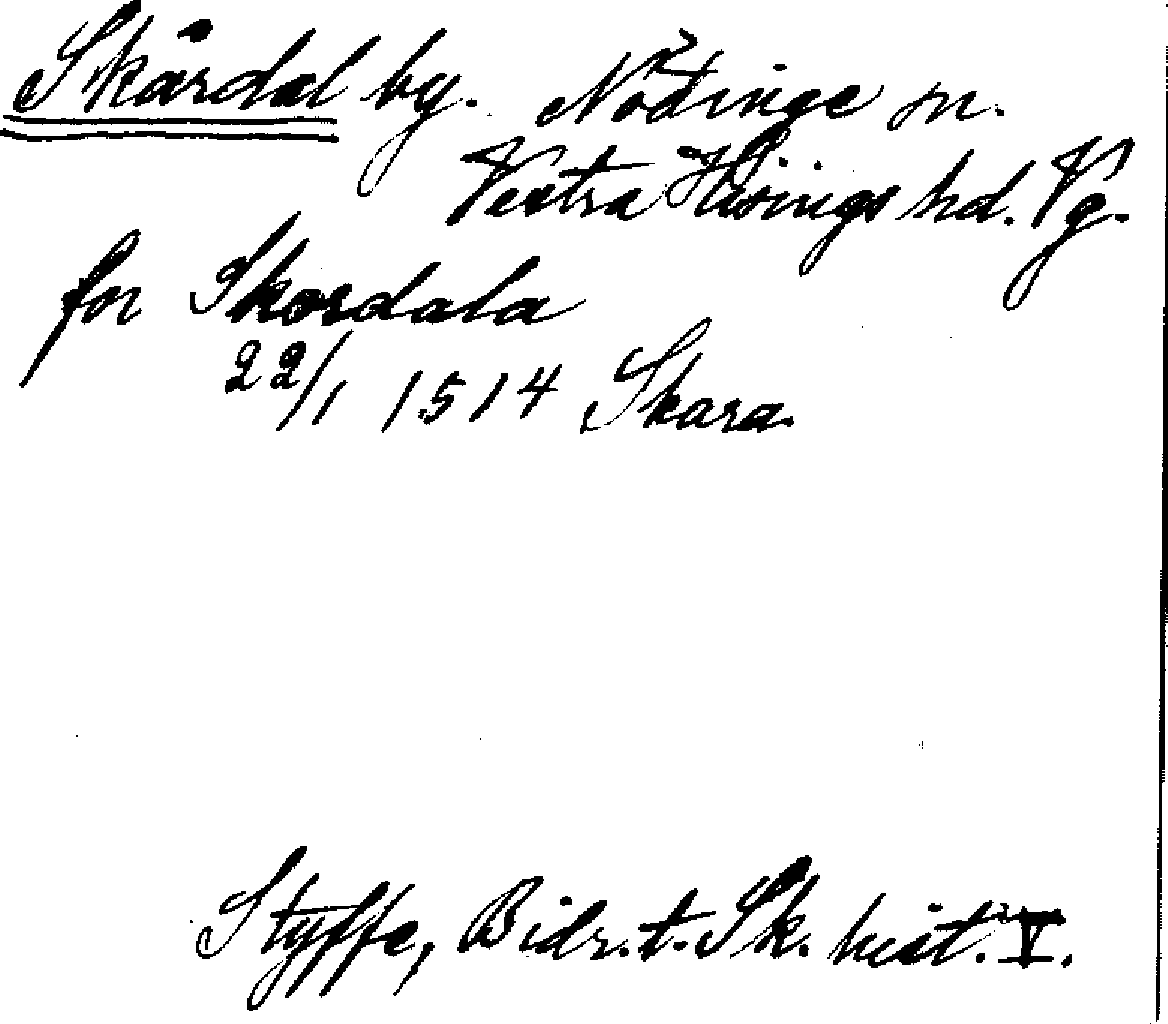 Skårdal by. Nödinge sn.
Vestra Hisings hd. Vg.
fn Skordala
22/1 1514 Skara.
Styffe, Bidr. t. Sk. hist. V.